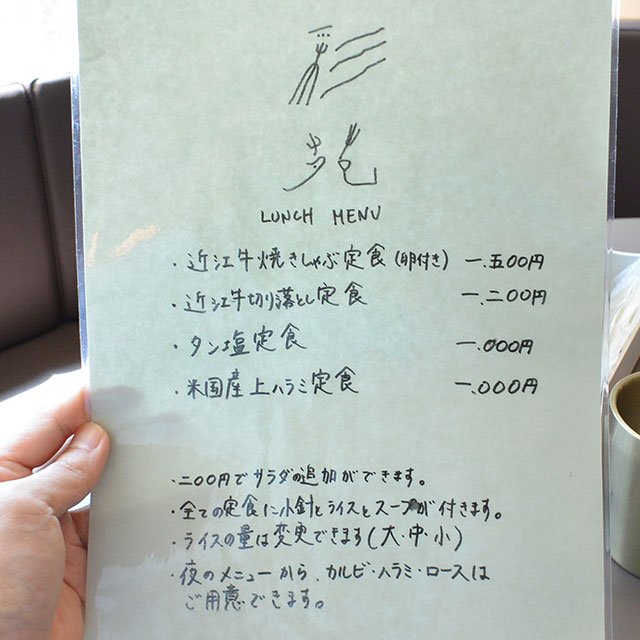 彩
苑
LUNCH MENU
・近江牛焼きしゃぶ定食(卵付き) 一.五00円
・近江牛切り落とし定食 一.二00円
・タン塩定食 一.000円
・米国産上ハラミ定食 一.000円
・二00円でサラダの追加ができます。
・全ての定食に小針とライスとスープが付きます。
・ライスの量は変更できます(大・中・小)
・夜のメニューから、カルビ・ハラミ・ロースは
ご用意できます。